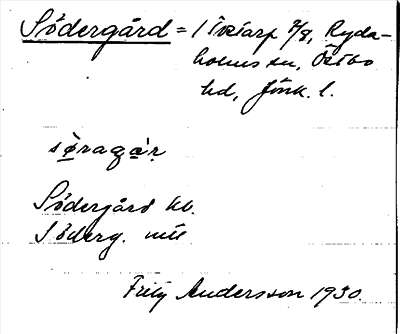 Södergård = 1 Tväriarp 7/8, Ryda-
holms sn, Östbo
hd, Jönk. l.
søragár
Södergård kb.
Söderg. mtl
Fritz Andersson 1930.